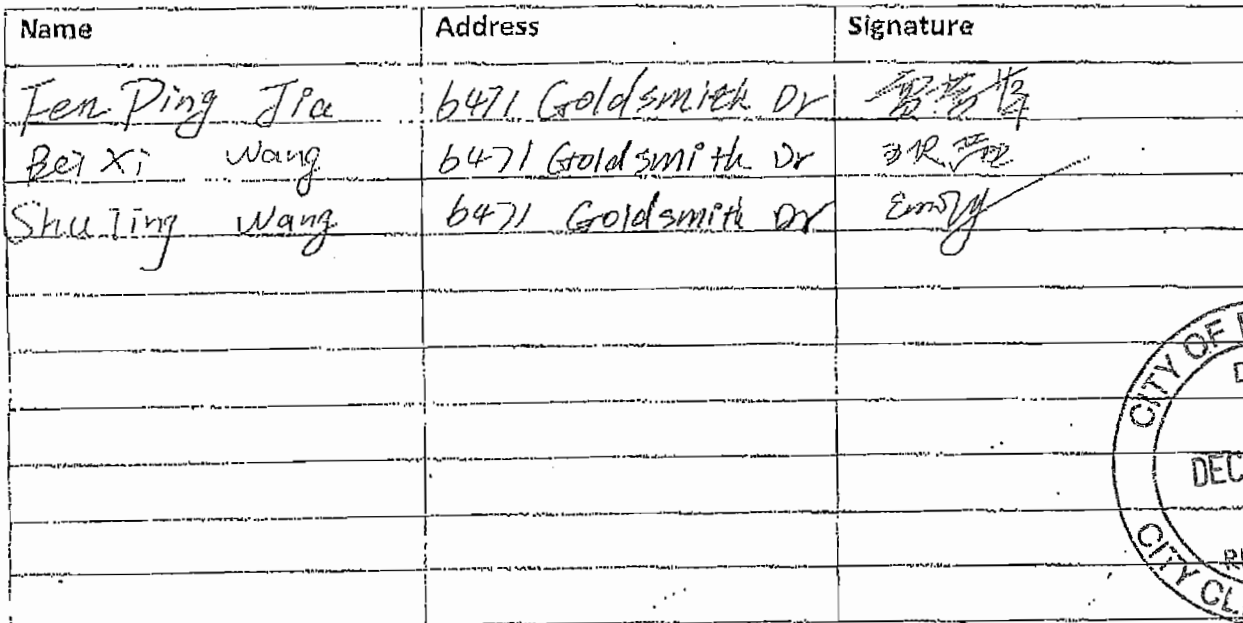 Name Address Signature
Fen Ping Jia 6471 Goldsmith Dr
Bei Xi Wang 6471 Goldsmith Dr
ShuTing Wang 6471 Goldsmith Dr
CITY OF
DEC
CITY CL